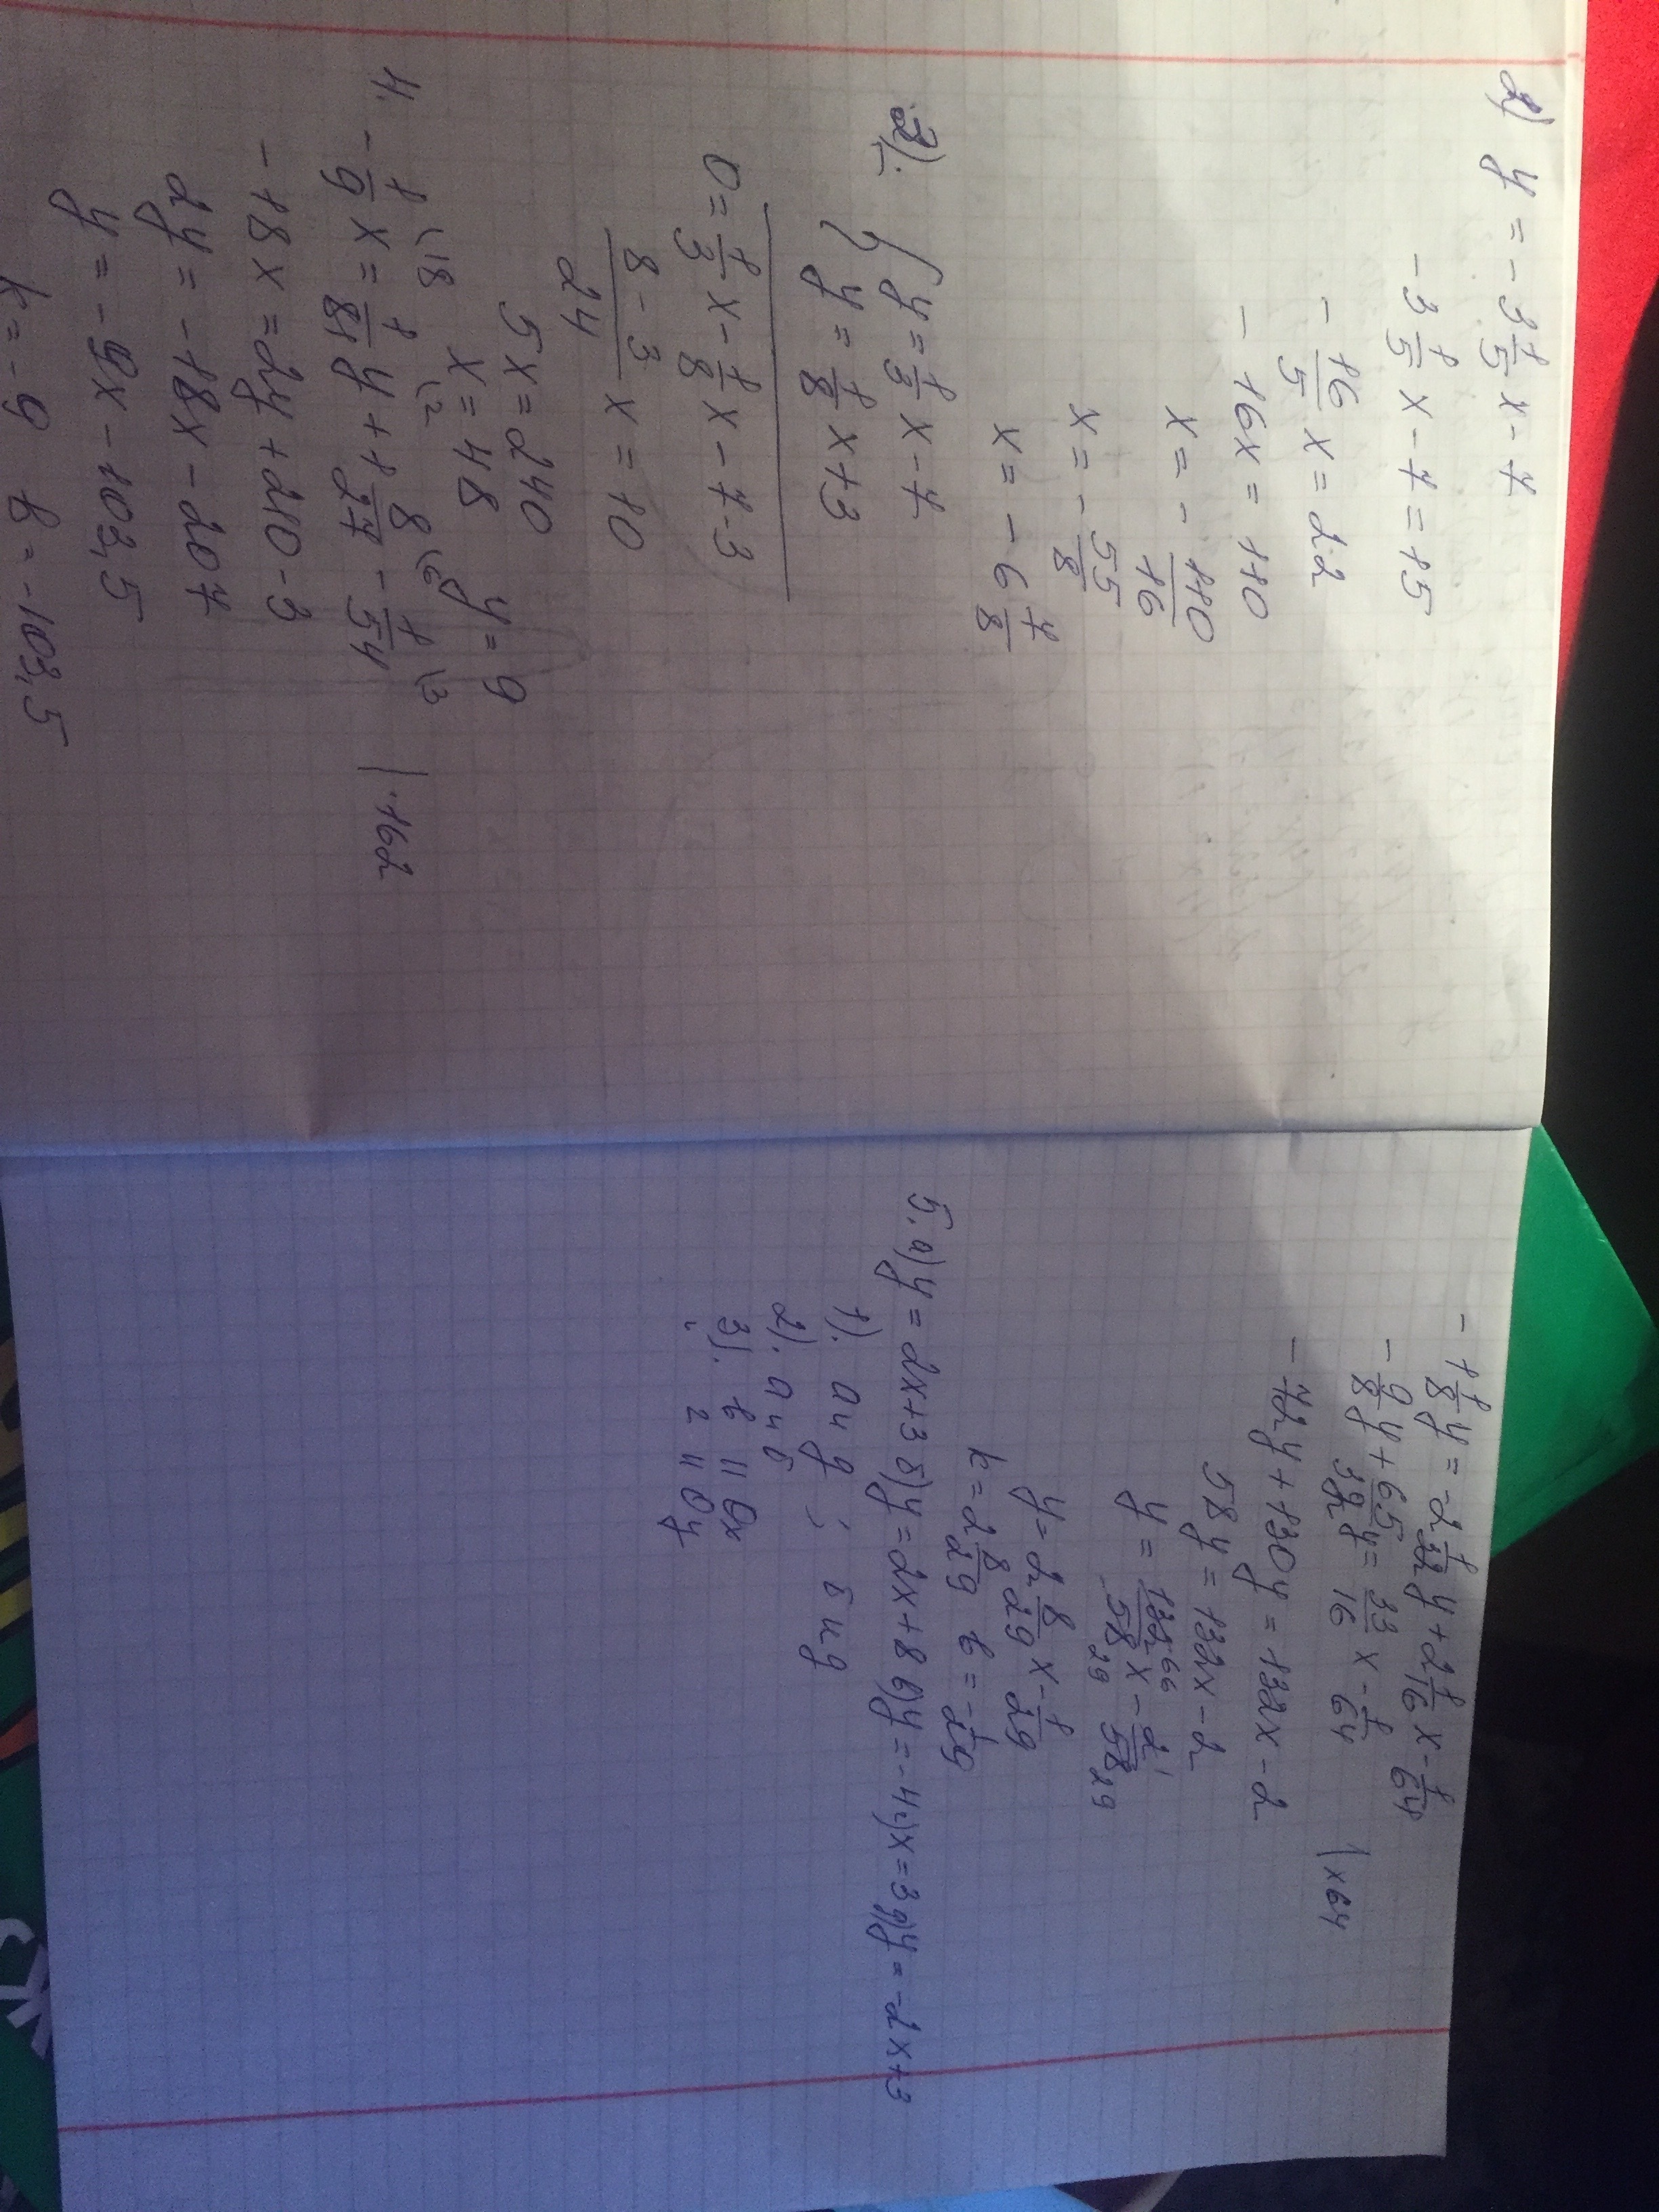 2) y = -3 1/5 x - 7
-3 1/5 x - 7 = 15
- 16/5 x = 22
- 16x = 110
x = - 110/16
x = - 55/8
x = - 6 7/8
2). { y = 1/3 x - 7
y = 1/8 x + 3
0 = 1/3 x - 1/8 x - 7 - 3
8 - 3 / 24 x = 10
5x = 240
x = 48 y = 9
4. - 1/9 \18 x = 1/81 \2 y + 1 8/27 \6 - 1/54 \3 | ·162
- 18x = 2y + 210 - 3
2y = - 18x - 207
y = - 9x - 103,5
k = - 9 b = - 103,5
- 1 1/8 y = - 2 1/32 y + 2 1/16 x - 1/64
- 9/8 y + 65/32 y = 33/16 x - 1/64 | x64
- 72y + 130y = 132x - 2
58y = 132x - 2
y = 132 66/58 29 x - 2 1/58 29
y = 2 8/29 x - 1/29
k = 2 8/29 b = - 1/29
5. а) y = 2x+3 б) y = 2x+8 в) y = -4 г) x = 3 д) y = -2x+3
1). а и д ; б и д
2). а и б
3). в || Ox
г || Oy